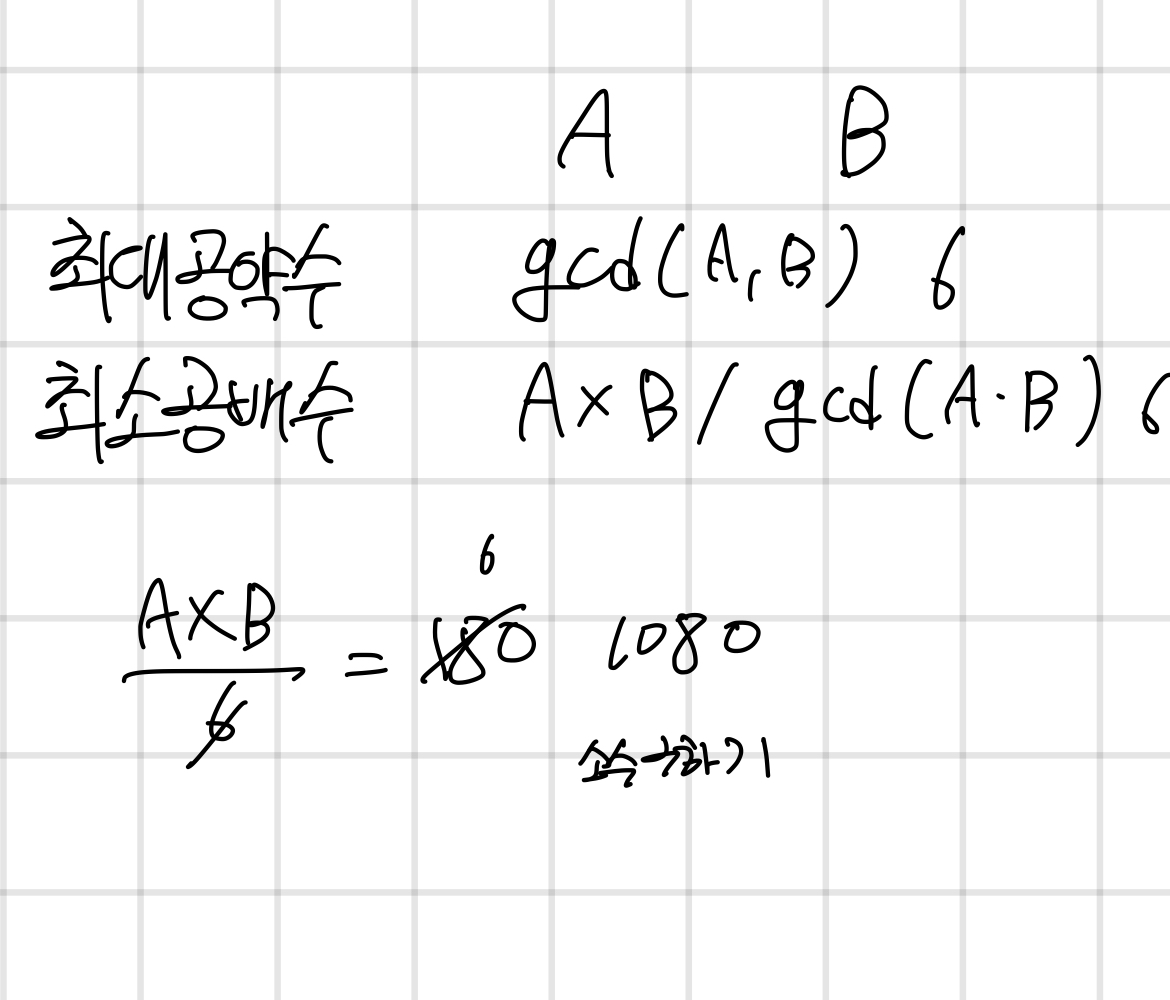 A B
최대공약수 gcd(A,B) 6
최소공배수 A×B/gcd(A·B) 6
6
A×B
= 180 1080
6
소수 구하기